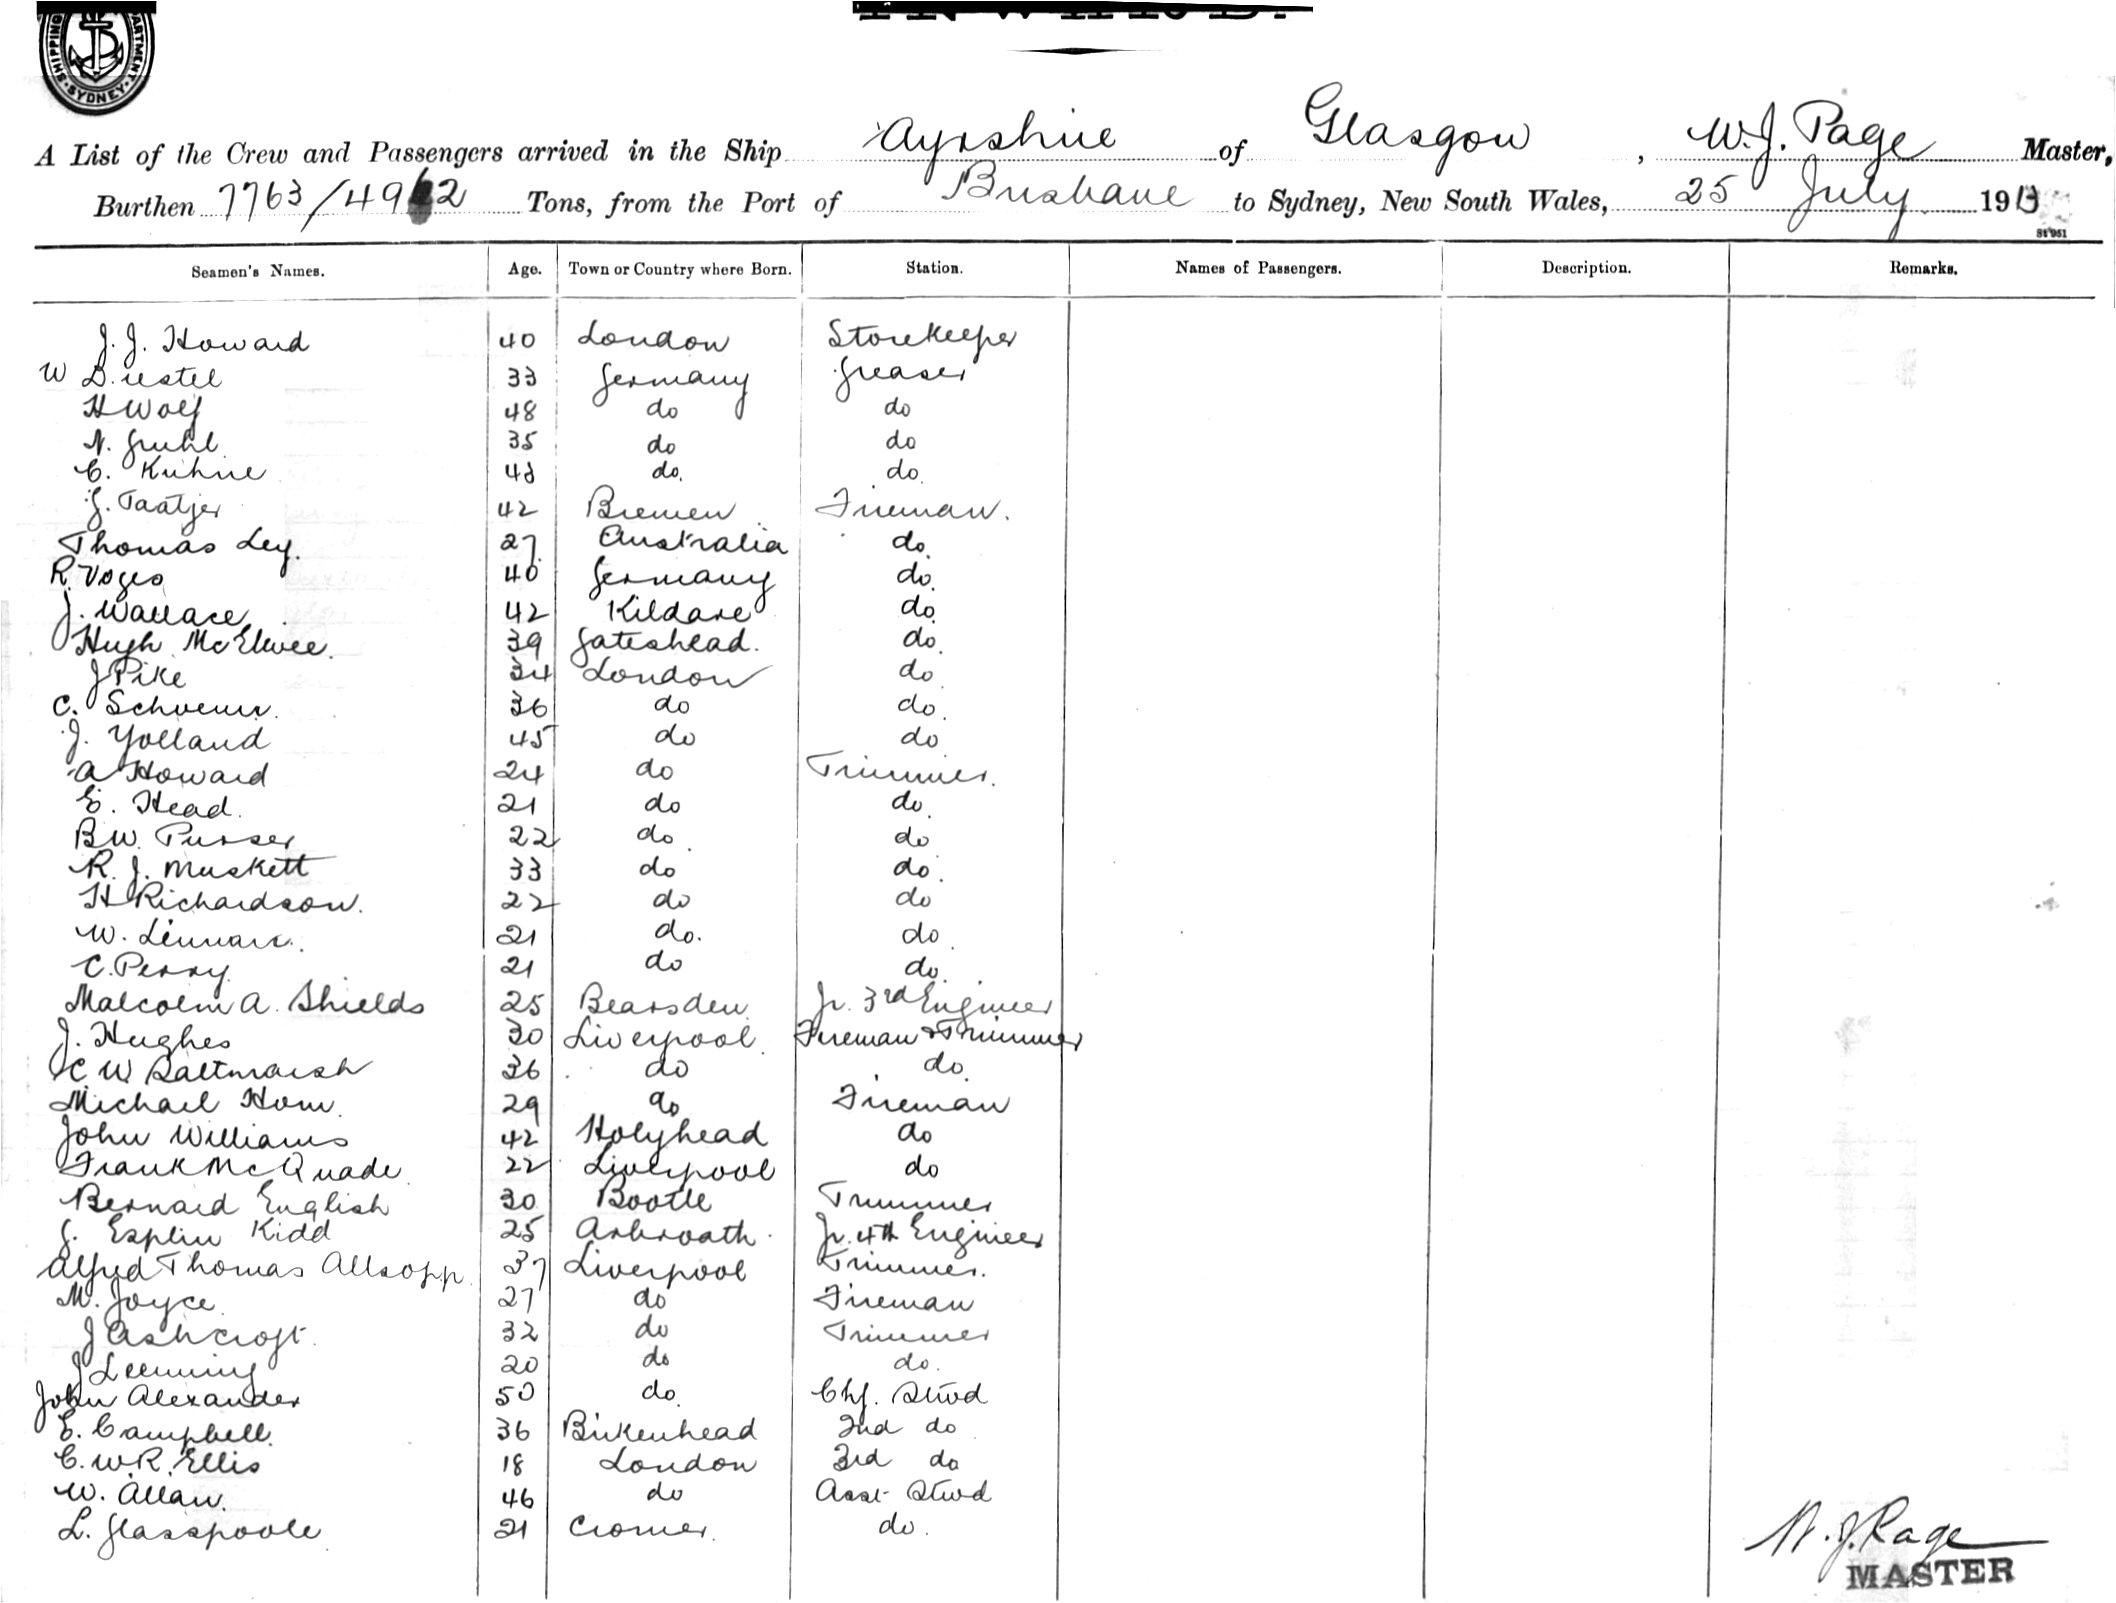 SHIPPING DEPARTMENT SYDNEY
INWARD.
A List of the Crew and Passengers arrived in the Ship Ayrshire of Glasgow, W. J. Page Master,
Burthen 7763/4912 Tons, from the Port of Brisbane to Sydney, New South Wales, 25 July 1913
St 951
Seamen's Names. Age. Town or Country where Born. Station. Names of Passengers. Description. Remarks.
J. J. Howard 40 London Storekeeper
W 33 Germany Greaser
H Wolf 48 do do
N. Gruhl 35 do do
C. Kuhne 43 do. do.
J. Taatjer 42 Bremen Fireman.
Thomas Ley. 27 Australia do.
R. Voges 40 Germany do.
J. Wallace 42 Kildare do.
Hugh McElwee. 39 Gateshead. do.
J Pike 34 London do
C. 36 do do.
J. Yolland 45 do do
A Howard 24 do Trimmer.
E. Head. 21 do do.
B.W. Purser 22 do. do
R. J. Muskett 33 do do.
H Richardson. 22 do do
W. 21 do. do
C. Perry. 21 do do.
Malcolm A. Shields 25 Bearsden Jr. 3rd Engineer
J. Hughes 30 Liverpool Fireman & Trimmer
C W Saltmarsh 36 do do.
Michael Horn. 29 do Fireman
John Williams 42 Holyhead do
Frank McQuade 22 Liverpool do
Bernard English 30 Bootle Trimmer
J. Esplin Kidd 25 Arbroath. Jr. 4th Engineer
Alfred Thomas Allsopp. 37 Liverpool Trimmer.
M. Joyce. 27 do Fireman
J Ashcroft. 32 do Trimmer
J Leeming 20 do do.
John Alexander 50 do. Chf. Stwd
E. Campbell. 36 Birkenhead 2nd do
C. W. R. Ellis 18 London 3rd do
W. Allan. 46 do Asst Stwd
L. Glasspoole 21 Cromer. do.
W. J. Page
MASTER